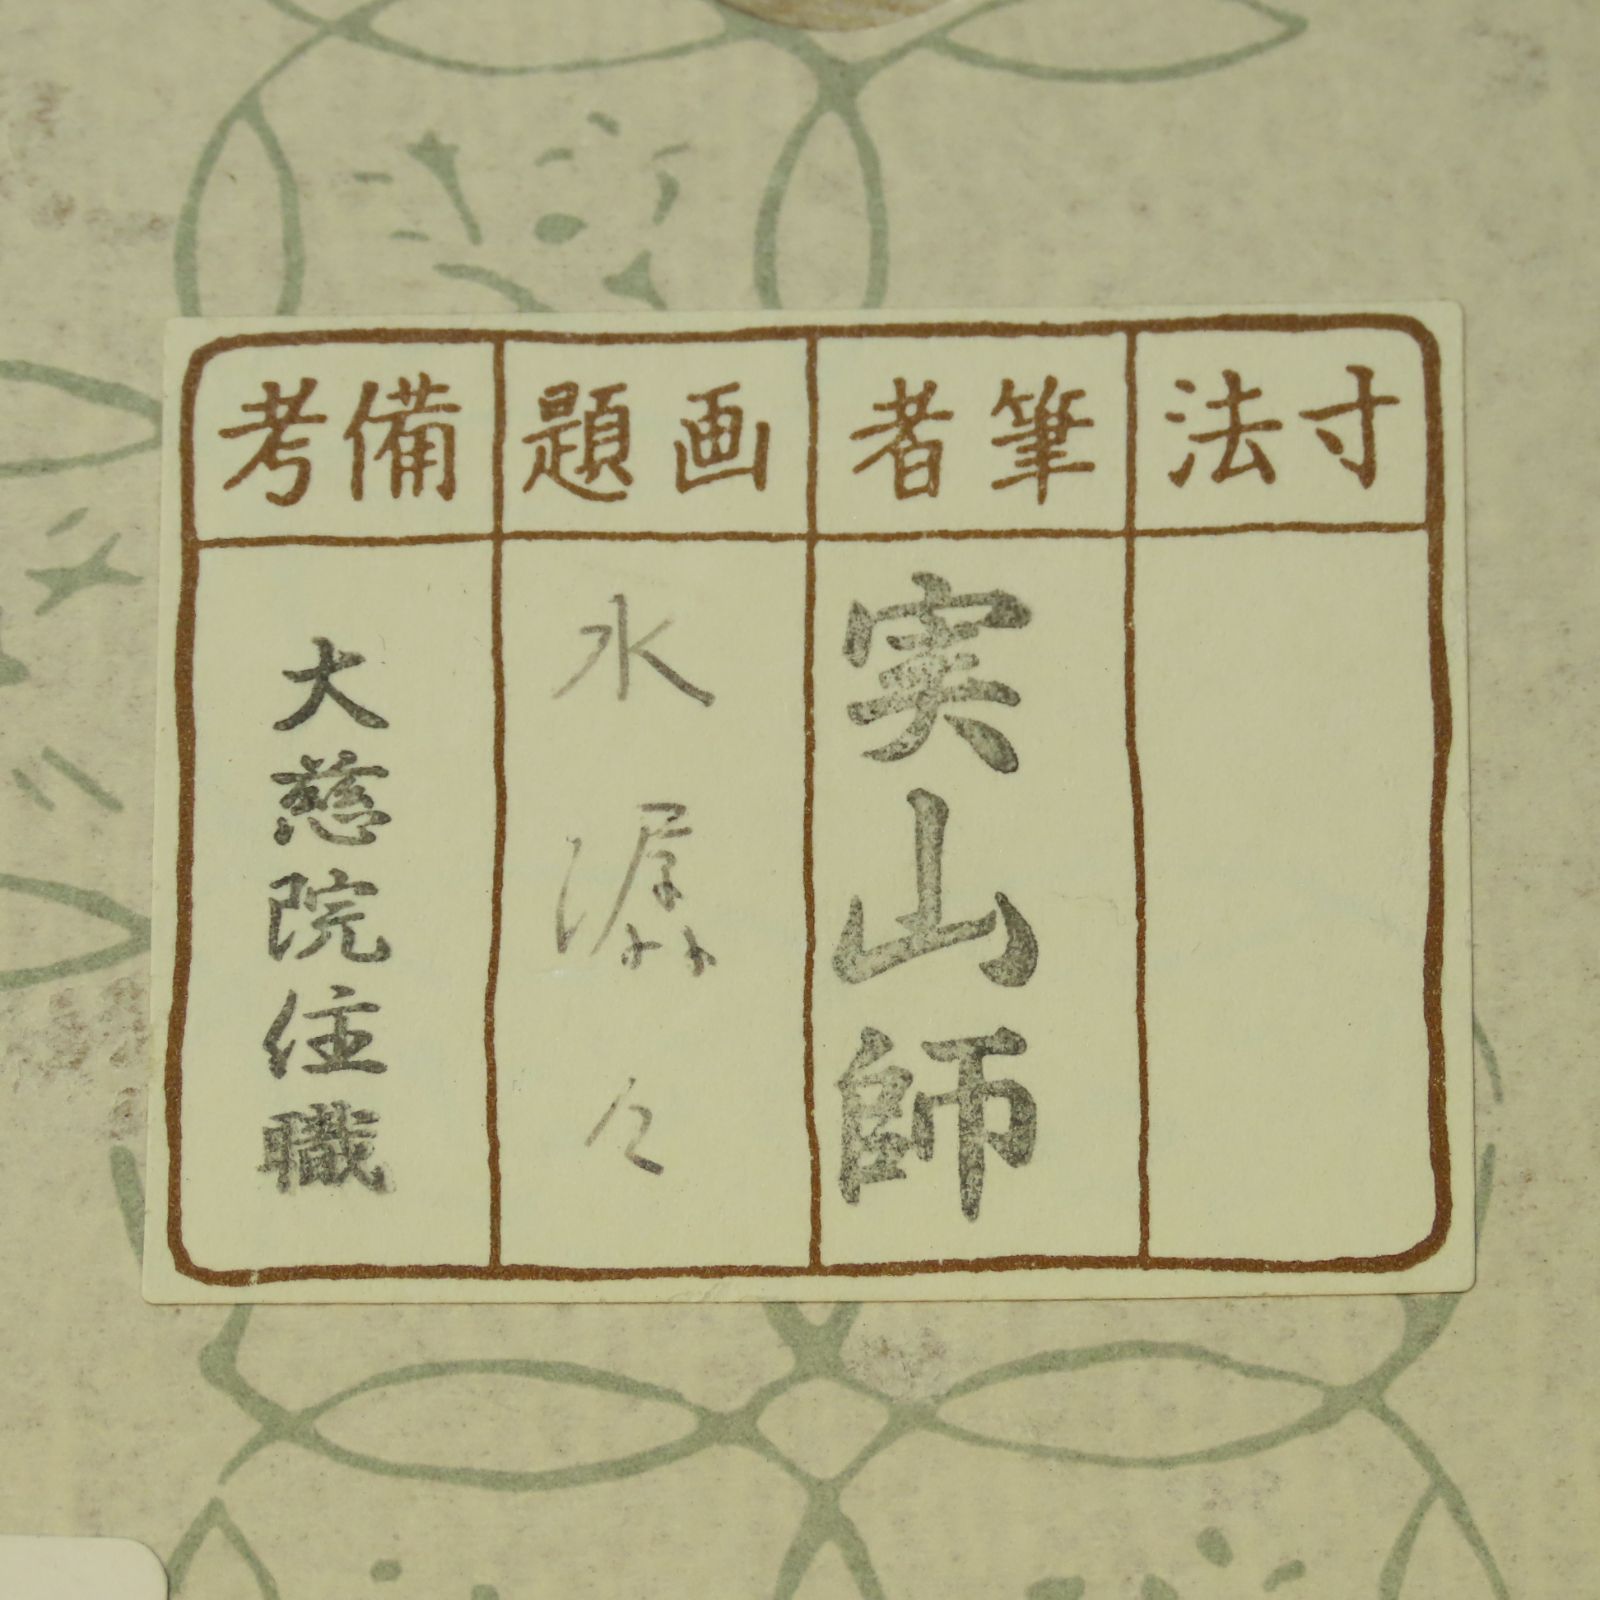 寸法
筆者
実山師
画題
水潺々
備考
大慈院住職